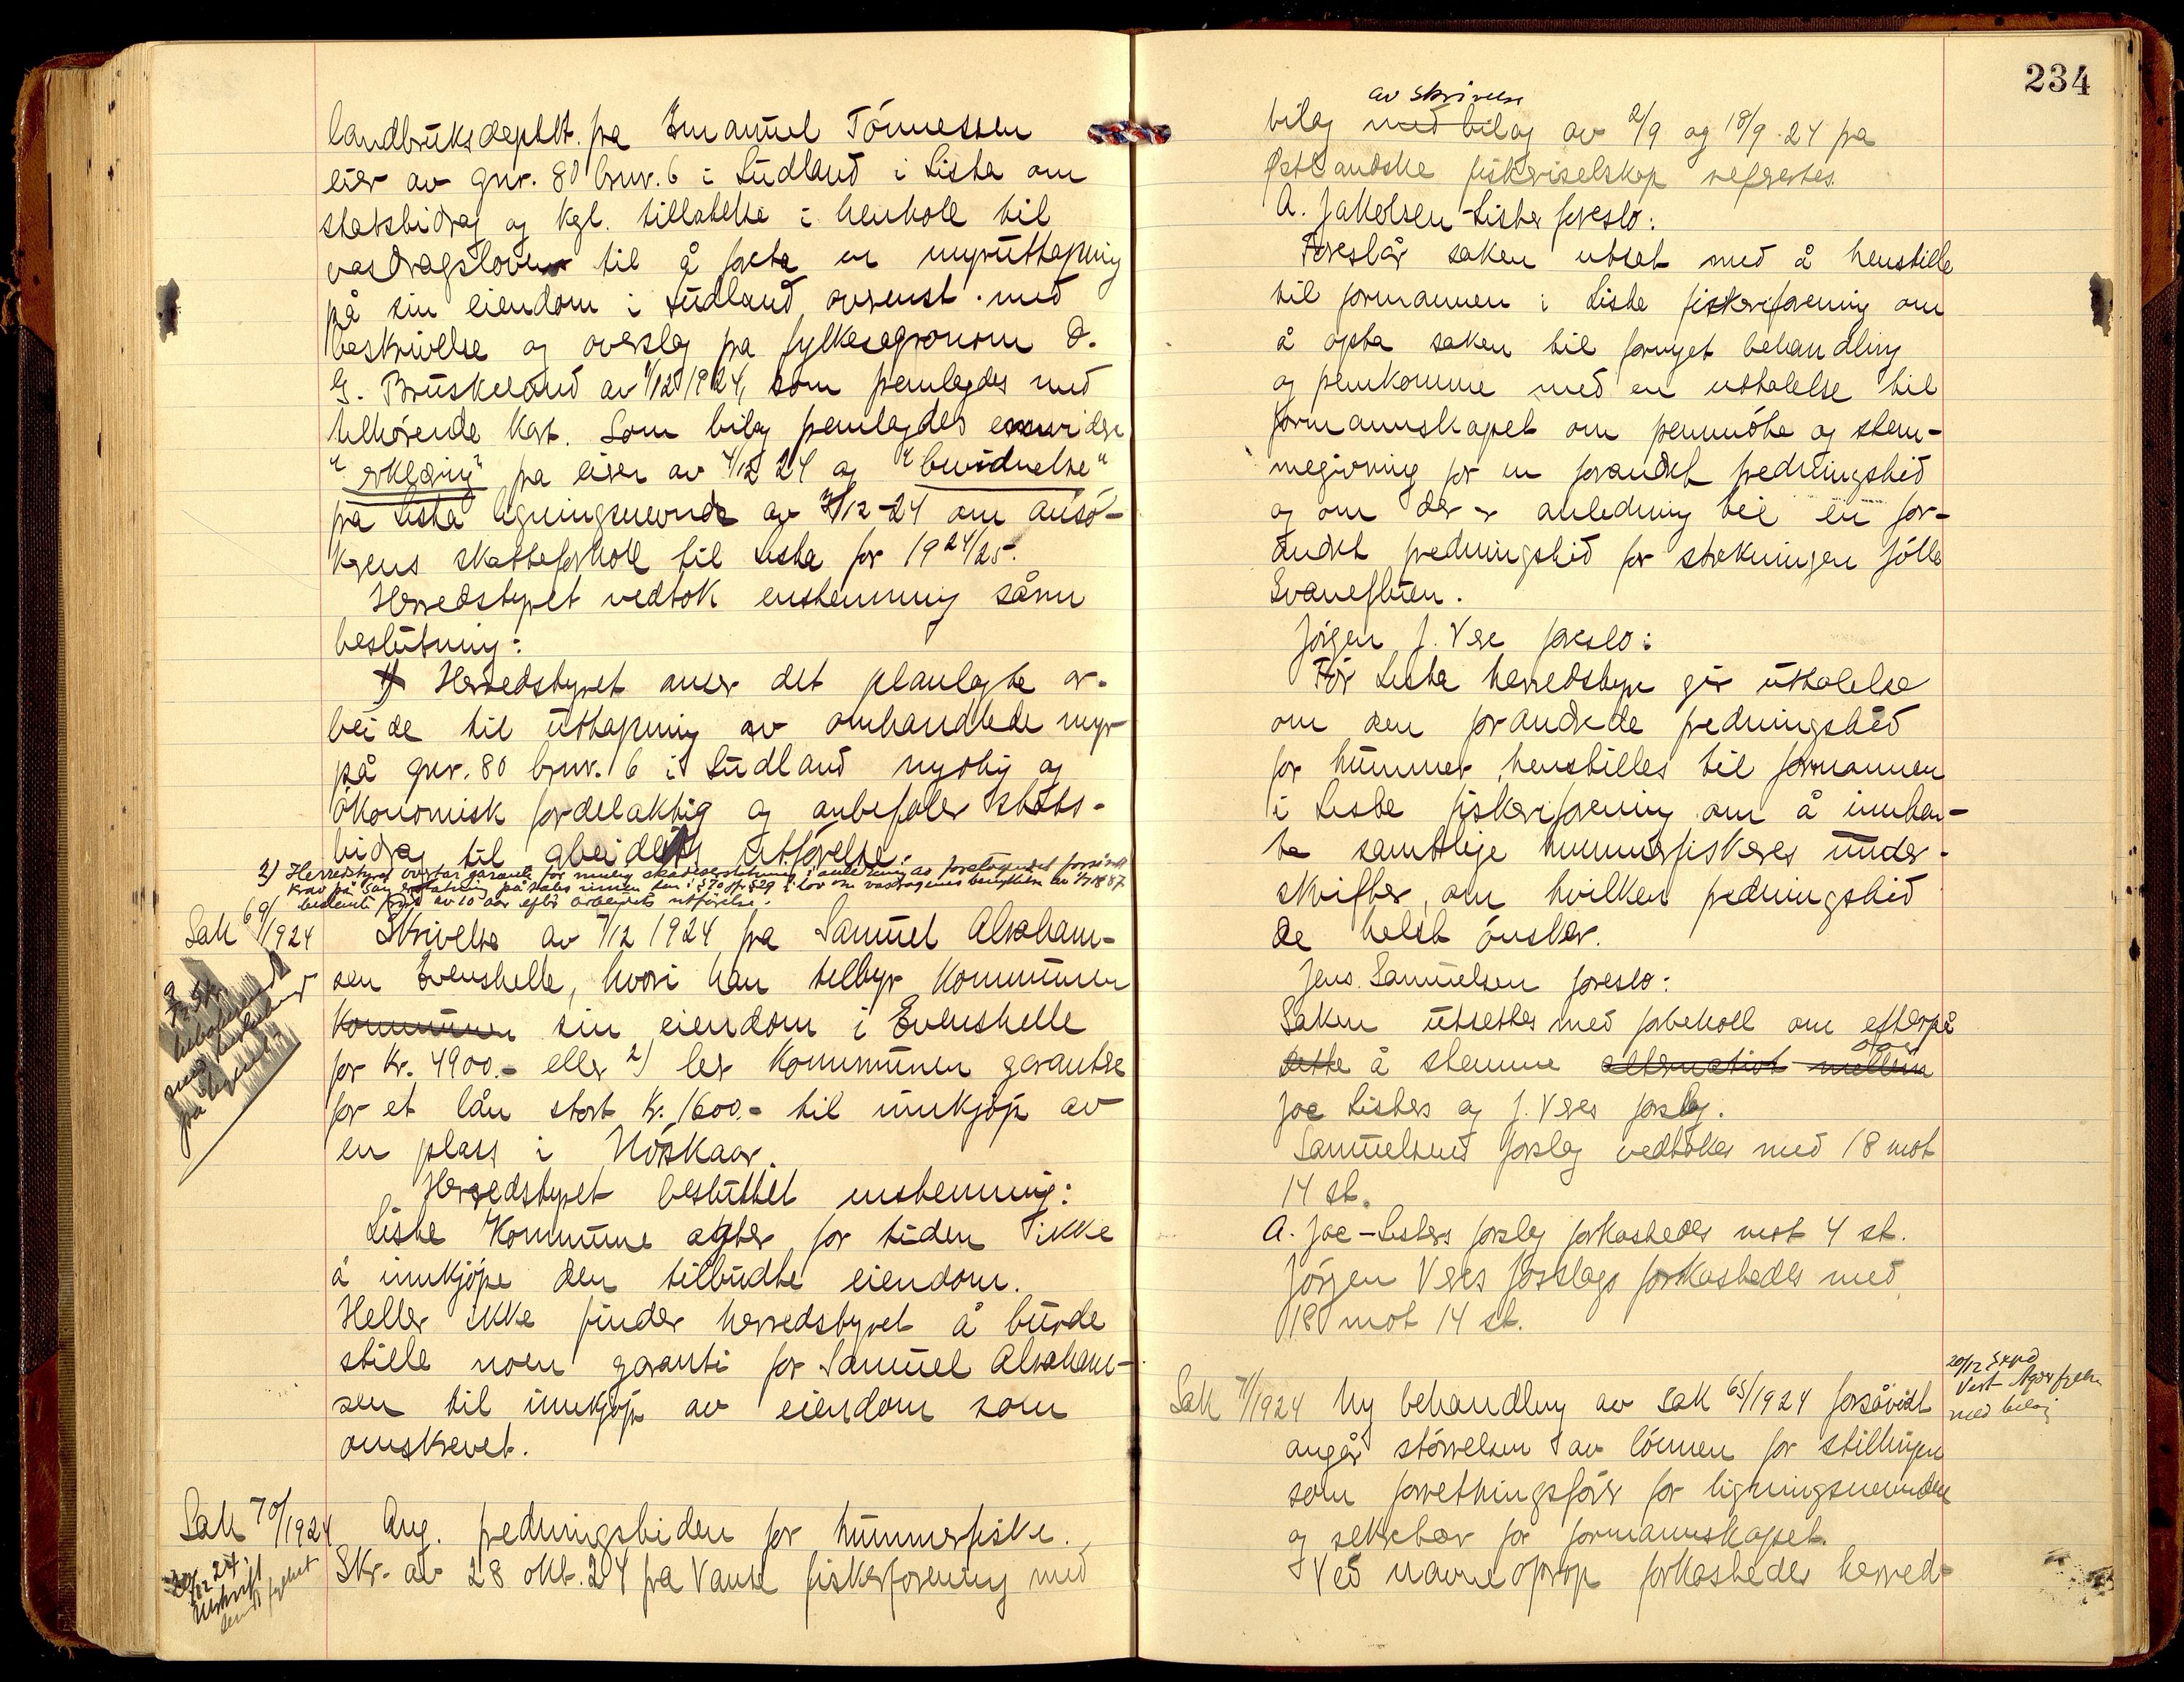 landbruksdeptet. fra Emanuel Tönnessen
eier av gnr. 80 brnr. 6 i Lüdland i Lista om
statsbidrag og kgl. tillatelse i henholl til
vasdragsloven til å foreta en myruttapning
på sin eiendom i Lüdland ovrenst. med
beskrivelse og overslag fra fylkesagronom O.
G. Brüskeland av 1/12 1924, som fremlagdes med
tilhörende kart. Som bilag fremlagdes enn videre
"erklæring" fra eieren av 4/12 24 og "bevidnelse"
fra Lista ligningsnevnde av 3/12-24 om ansö-
kerens skatteforholl til Lista for 1924/25.
Herredstyret vedtok enstemmig sånn
beslutning:
1) Herredstyret anser det planlagte ar-
beide til uttapning av omhandlede myr
på gnr. 80 brnr. 6 i Lüdland nyttig og
ökonomisk fordelaktig og anbefaler stats-
bidrag til arbeidets utförelse.
2) Herredstyret overtar garanti for mulig skadeserstatning i anledning av foretagendet forsåvidt
krav på sån erstatning på tales innen den i § 70 jfr § 29 i lov om vasdragenes benyttelse av 1/7 1887
bestemte frist av 10 aar efter arbeidets utförelse.
Sak 69/1924 Skrivelse av 7/12 1924 fra Samuel Abraham-
sen Evenstelle, hvori han tilbyr kommunen
kommunen sin eiendom i Evenstelle
for kr. 4900.- eller 2) ber kommunen garantere
for et lån stort kr. 1600.- til innkjöp av
en plass i Höskaar.
Herredstyret besluttet enstemmig:
Lista kommune agter for tiden ikke
å innkjöpe den tilbudte eiendom.
Heller ikke finder herredstyret å burde
stille noen garanti for Samuel Abraham-
sen til innkjöp av eiendom som
omskrevet.
Sak 70/1924 Ang. fredningstiden for hummerfiske.
20/12 24
Utskrift
sendt fylket
Skr. av 28 okt. 24 fra Vanse fiskerforening med
234
av skrivelse
bilag med bilag av 2/9 og 18/9 24 fra
Östlandske fiskeriselskap refertes.
A. Jakobsen-Lista foreslo:
Foreslår saken utsat med å henstille
til formannen i Lista fiskerforening om
å opta saken til fornyet behandling
og fremkomme med en uttalelse til
formannskapet om fremmöte og stem-
megivning for en forandret fredningstid
og om der er anledning til en for-
andret fredningstid for strekningen Jölle
Svaneflüen.
Jörgen J. Vere foreslo:
För Lista herredstyre gir uttalelse
om den forandrede fredningstid
for hummer, henstilles til formannen
i Lista fiskerforening om å innhen-
te samtlige hummerfiskeres under-
skrifter, om hvilken fredningstid
de helst önsker.
Jens Samuelsen foreslo:
Saken utsettes med forbeholl om efterpå
dette å stemme alternativt mellem over
Jac Listers og J. Veres forslag.
Samuelsens forslag vedtokes med 18 mot
14 st.
A. Jac-Listers forslag forkastedes mot 4 st.
Jörgen Veres forslags forkastedes med
18 mot 14 st.
20/12 Skrevd
Vest-Agder fylke
med bilag
Sak 71/1924 Ny behandling av sak 65/1924 forsåvidt
angår störrelsen av lönnen for stillingen
som forretningsförer for ligningsnevnden
og sekretær for formannskapet.
Ved navneoprop forkastedes herred-